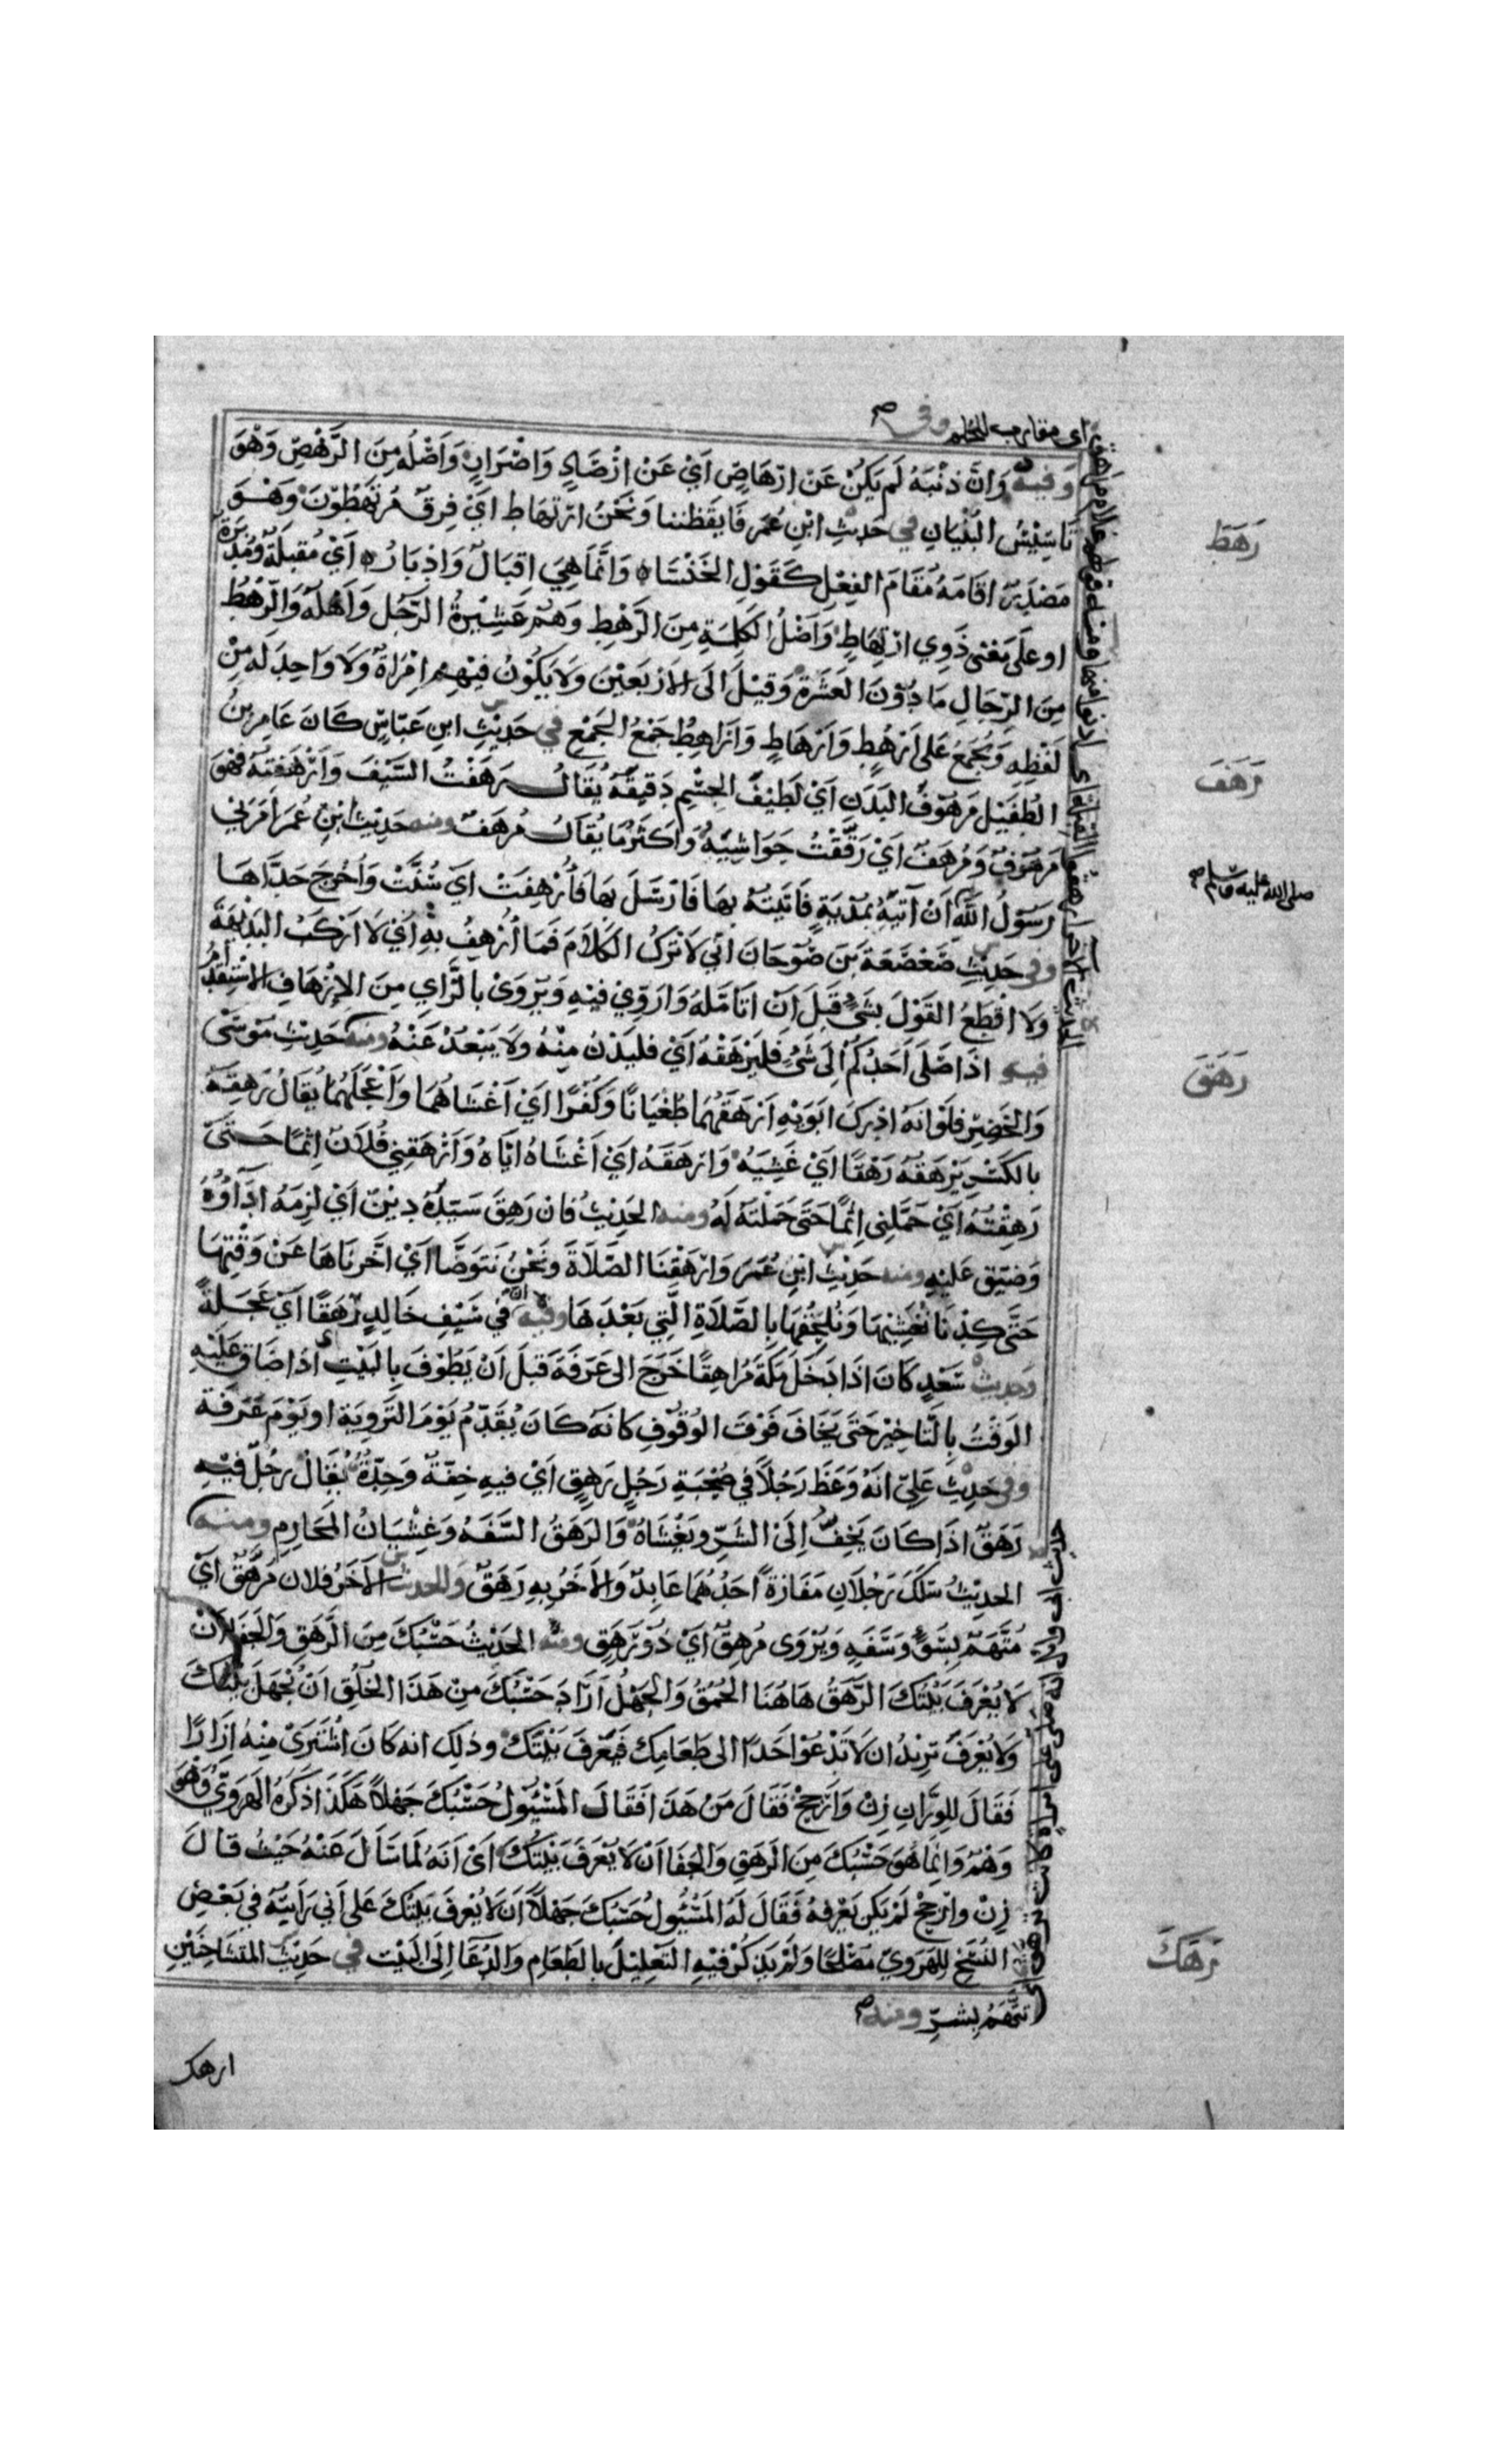 اي مقارب للحلم وفي صح
وَفيه وَانَّ ذنْبَهُ لَم يَكُنْ عَنْ ارْهَاصٍ اَيْ عَنْ ارْصَادٍ وَاصْرَارٍ وَاَصْلُهُ مِنَ الرَّهْصِ وَهْوَ
تَاسِيْسُ البُنْيَانِ في حَديْثِ ابْنِ عُمَر فَايقَظننا وَنَحْنُ ارْتهَاط اَيْ فِرقٌ مُرْتَهِطُوْنَ وَهْوَ
مَصْدَرٌ اقَامَهُ مُقَامَ الفِعْلِ كَقَوْلِ الخَنْسَاءِ وَانَّمَا هِيَ اِقبَالٌ وَادْبَارُ اَيْ مُقبِلَةٌ وَمُدْبِرَةٌ
او عَلَى مَعْنى ذَوِي ارْتِهَاطٍ وَاَصْلُ الكَلِمَةِ مِنَ الرَّهْطِ وَهُمْ عَشِيْرةُ الرَّجُل وَاَهْلُهُ وَالرَّهْطُ
مِنَ الرِّجَالِ مَا دُوْنَ العَشَرَةِ وَقيْلَ الَى الارْبَعيْنَ وَلَا يَكُوْنُ فيْهِم امْرَاةٌ وَلَا وَاحِدَ لَهُ مِنْ
لَفْظِهِ وَيُجْمَعُ عَلى اَرْهُطٍ وَاَرْهَاطٍ وَاَرَاهِطُ جَمْعُ الجَمْعِ في حَدِيْثِ ابنِ عَبّاسٍ كَانَ عَامِر بنُ
الطُفَيْل مَرهُوْفَ البَدَنِ اَيْ لَطِيْفَ الجِسْمِ دَقيْقَهُ يُقَالُ رَهَفْتُ السَّيْفَ وَاَرْهَفْتُهُ فَهْوَ
مَرهُوْفٌ وَمُرهَفٌ اَيْ رَقَّقْتُ حَوَاشِيَهُ وَاَكْثَرُ مَا يُقَالُ مُرهَفٌ ومنه حَدِيْثُ ابْنِ عُمَر اَمَرَنِي
رَسُوْلُ اللهِ اَنْ آتيَهُ بمُدْيَةٍ فَاتَيْتُهُ بهَا فَارْسَلَ بهَا فَأُرْهِفَتْ اَي سُنَّتْ وَاُخْرِجَ حَدَّاهَا
وفي حَدِيْثِ صَعْصَعَةَ بنَ صُوْحَانَ انّي لَاَتْرُكُ الكَلَامَ فَمَا اُرْهِفُ بهِ اَيْ لَا اَرْكَبُ البَدْيهَةَ
وَلا اقْطَعُ القَوْلَ بشَيءٍ قَبلَ اَنْ اتَامَّلَهُ وَاُرَوِّيَ فيْهِ وَيُرْوَىْ بالزَّايِ مِنَ الاِزْهَافِ الاسْتِقْدَامُ
فيه اذَا صَلَّى اَحَدُكُمْ اِلَى شَيْءٍ فَليَرْهَقْهُ اَيْ فليَدْنُ مِنْهُ وَلَا يَبْعُدْ عَنْهُ ومنه حَدِيْث مُوْسَى
وَالخَضِرِ فلَوْ انهُ ادْركَ ابَوَيْهِ اَرْهَقَهُمَا طُغْيَانًا وَكُفْرًا اَيْ اَغْشَاهُمَا وَاَعْجَلَهُمَا يُقَالُ رَهِقَهُ
بالكَسْرِ يَرْهَقُهُ رَهْقًا اَيْ غَشِيَهُ وَارْهَقَهُ اَيْ اَغْشَاهُ ايَّاهُ وَاَرْهَقَنِي فُلَانٌ اِثْمًا حَتَّى
رَهِقْتُهُ اَيْ حَمَّلَنِي اِثمًا حَتَى حَمَلْتُهُ لَهُ ومنه الحَدِيْثُ فَان رَهِقَ سَيّدَهُ دِيْنٌ اَيْ لَزِمَهُ ادَاؤُهُ
وَضُيّقَ عَلَيْهِ ومنه حَدِيْثُ ابْنِ عُمَرَ وَارْهَقْنَا الصَّلَاةَ وَنَحْنُ نَتَوَضَّا اَيْ اخَّرنَاهَا عَنْ وَقْتِهَا
حَتَّى كِدْنَا نُغْشِيْهَا وَنُلْحِقُهَا بِالصَّلَاةِ الَّتِي بَعْدَهَا وفيه ان في سَيْفِ خَالِدٍ رَهَقًا اَيْ عَجَلَةً
وَحديثُ سَعْدٍ كَانَ اذَا دَخَلَ مَكّةَ مُرَاهِقًا خَرَجَ الى عَرَفَةَ قَبلَ اَنْ يَطُوْفَ بِالبَيْتِ اي اذَا ضَاقَ عَلَيْهِ
الوَقْتُ بِالتَّاخِيْرِ حَتّى يَخَافَ فَوْتَ الوُقُوْفِ كَانهُ كَانَ يُقَدّمُ يَوْمَ التَّروِيَةِ او يَوْمَ عَرَفَةَ
وفي حَدِيْثِ عَلِيّ انَّهُ وَعَظَ رَجُلًا في صُحْبَةِ رَجُلٍ رَهِقٍ اَيْ فيهِ خِفّةٌ وَحِدّةٌ يُقَالُ رجُلٌ فيْهِ
رَهَقٌ اذَا كَانَ يَخِفُّ اِلَى الشَّرّ وَيَغْشَاهُ وَالرَهَقُ السَّفَهُ وَغِشْيَانُ المَحَارِمِ ومنه
الحَدِيْثُ سَلَكَ رَجُلَانِ مَفَازَةً اَحَدُهُمَا عَابِدٌ وَالاخَرُ بهِ رَهَقٌ وَالحديث الاخَرُ فُلَان مُرَهَّقٌ اَيْ
مُتَّهَمٌ بِسُوْءٍ وَسَفَهٍ وَيُرْوَى مُرهِقٌ اَيْ ذُوْ رَهَقٍ ومنه الحَدِيْثُ حَسْبُكَ مِنَ الرَّهَقِ وَالجَفَاءِ اَنْ
لَا يُعْرَفَ بَيْتُكَ الرَّهَقُ هَاهُنَا الحُمْقُ وَالجَهْلُ اَرَادَ حَسْبُكَ مِنْ هَذَا الخُلُقِ اَنْ يُجْهَلَ بَيْتُكَ
وَلَا يُعْرَفَ يُرِيْدُ ان لَا تَدْعُوَ اَحَدًا الى طَعَامِكَ فَيَعْرِفَ بَيْتَكَ وذلِكَ انه كَانَ اشْتَرَىْ مِنْهُ اِزَارًا
فَقَالَ للوَزَّانِ زِنْ وَاَرْجِحْ فَقَالَ مَنْ هَذَا فَقَالَ المَسْئُوْلُ حَسْبُكَ جَهْلاً هَكَذَا ذكَرَهُ الهَرَوِيُّ وَهُوَ
وَهْمٌ وَانَّمَا هُوَ حَسْبُكَ مِنَ الرَهَقِ وَالجَفَا اَنْ لَا يُعْرَفَ بَيْتُكَ اَيْ اَنَهُ لَمَا سَاَلَ عَنْهُ حَيْثُ قَالَ
زِنْ وارْجِحْ لَمْ يَكن يَعْرِفهُ فَقَالَ لَهُ المَسْئُوْلُ حَسْبُكَ جَهْلاً اَنْ لَا يُعْرَفَ بَيْتُكَ عَلى اَني رَايْتُهُ في بَعْضِ
النُسَخِ لِلهَرَوِيّ مُصْلَحًا وَلَمْ يَذكُرْ فيْهِ التَعْلِيْلَ بالطَعَامِ وَالدُعَا اِلَى البَيْت في حَدِيْثِ المُتَشَاحِنَيْنِ
تتَّهَمُ بِشَرّ ومنه صح
ارهك
رَهَطَ
رَهَفَ
صلى الله عليه وسلم صح
رَهَقَ
رَهَكَ